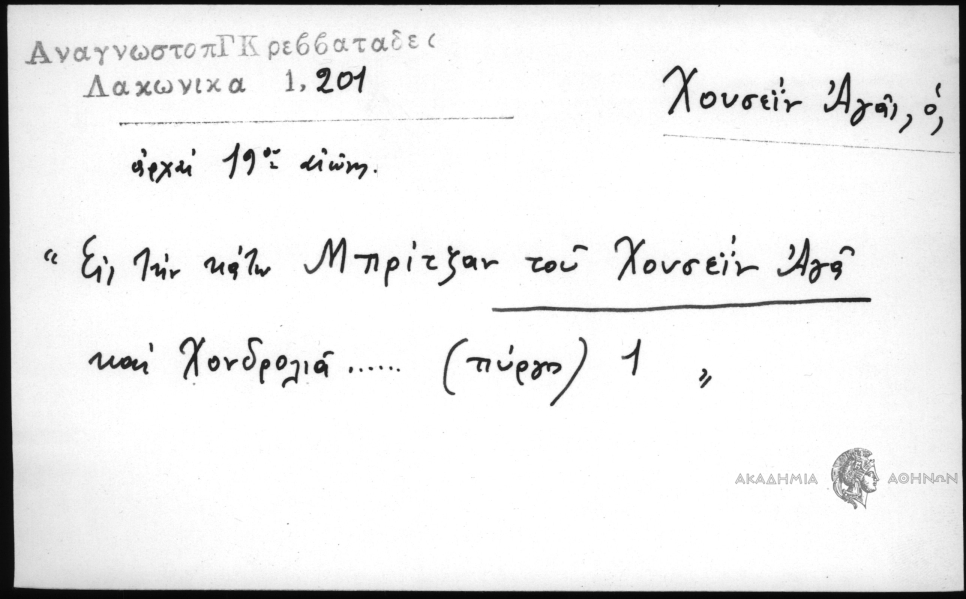 ΑναγνωστοπΓΚρεββαταδες
Λακωνικα 1, 201
Χουσεΐν Ἀγᾶς, ὁ,
ἀρχαὶ 19ου αἰῶνος.
“ Εἰς τὴν κάτω Μπρίτζαν τοῦ Χουσεΐν Ἀγᾶ
καὶ Χονδρολιᾶ ...... (πύργος) 1 „
ΑΚΑΔΗΜΙΑ ΑΘΗΝΩΝ